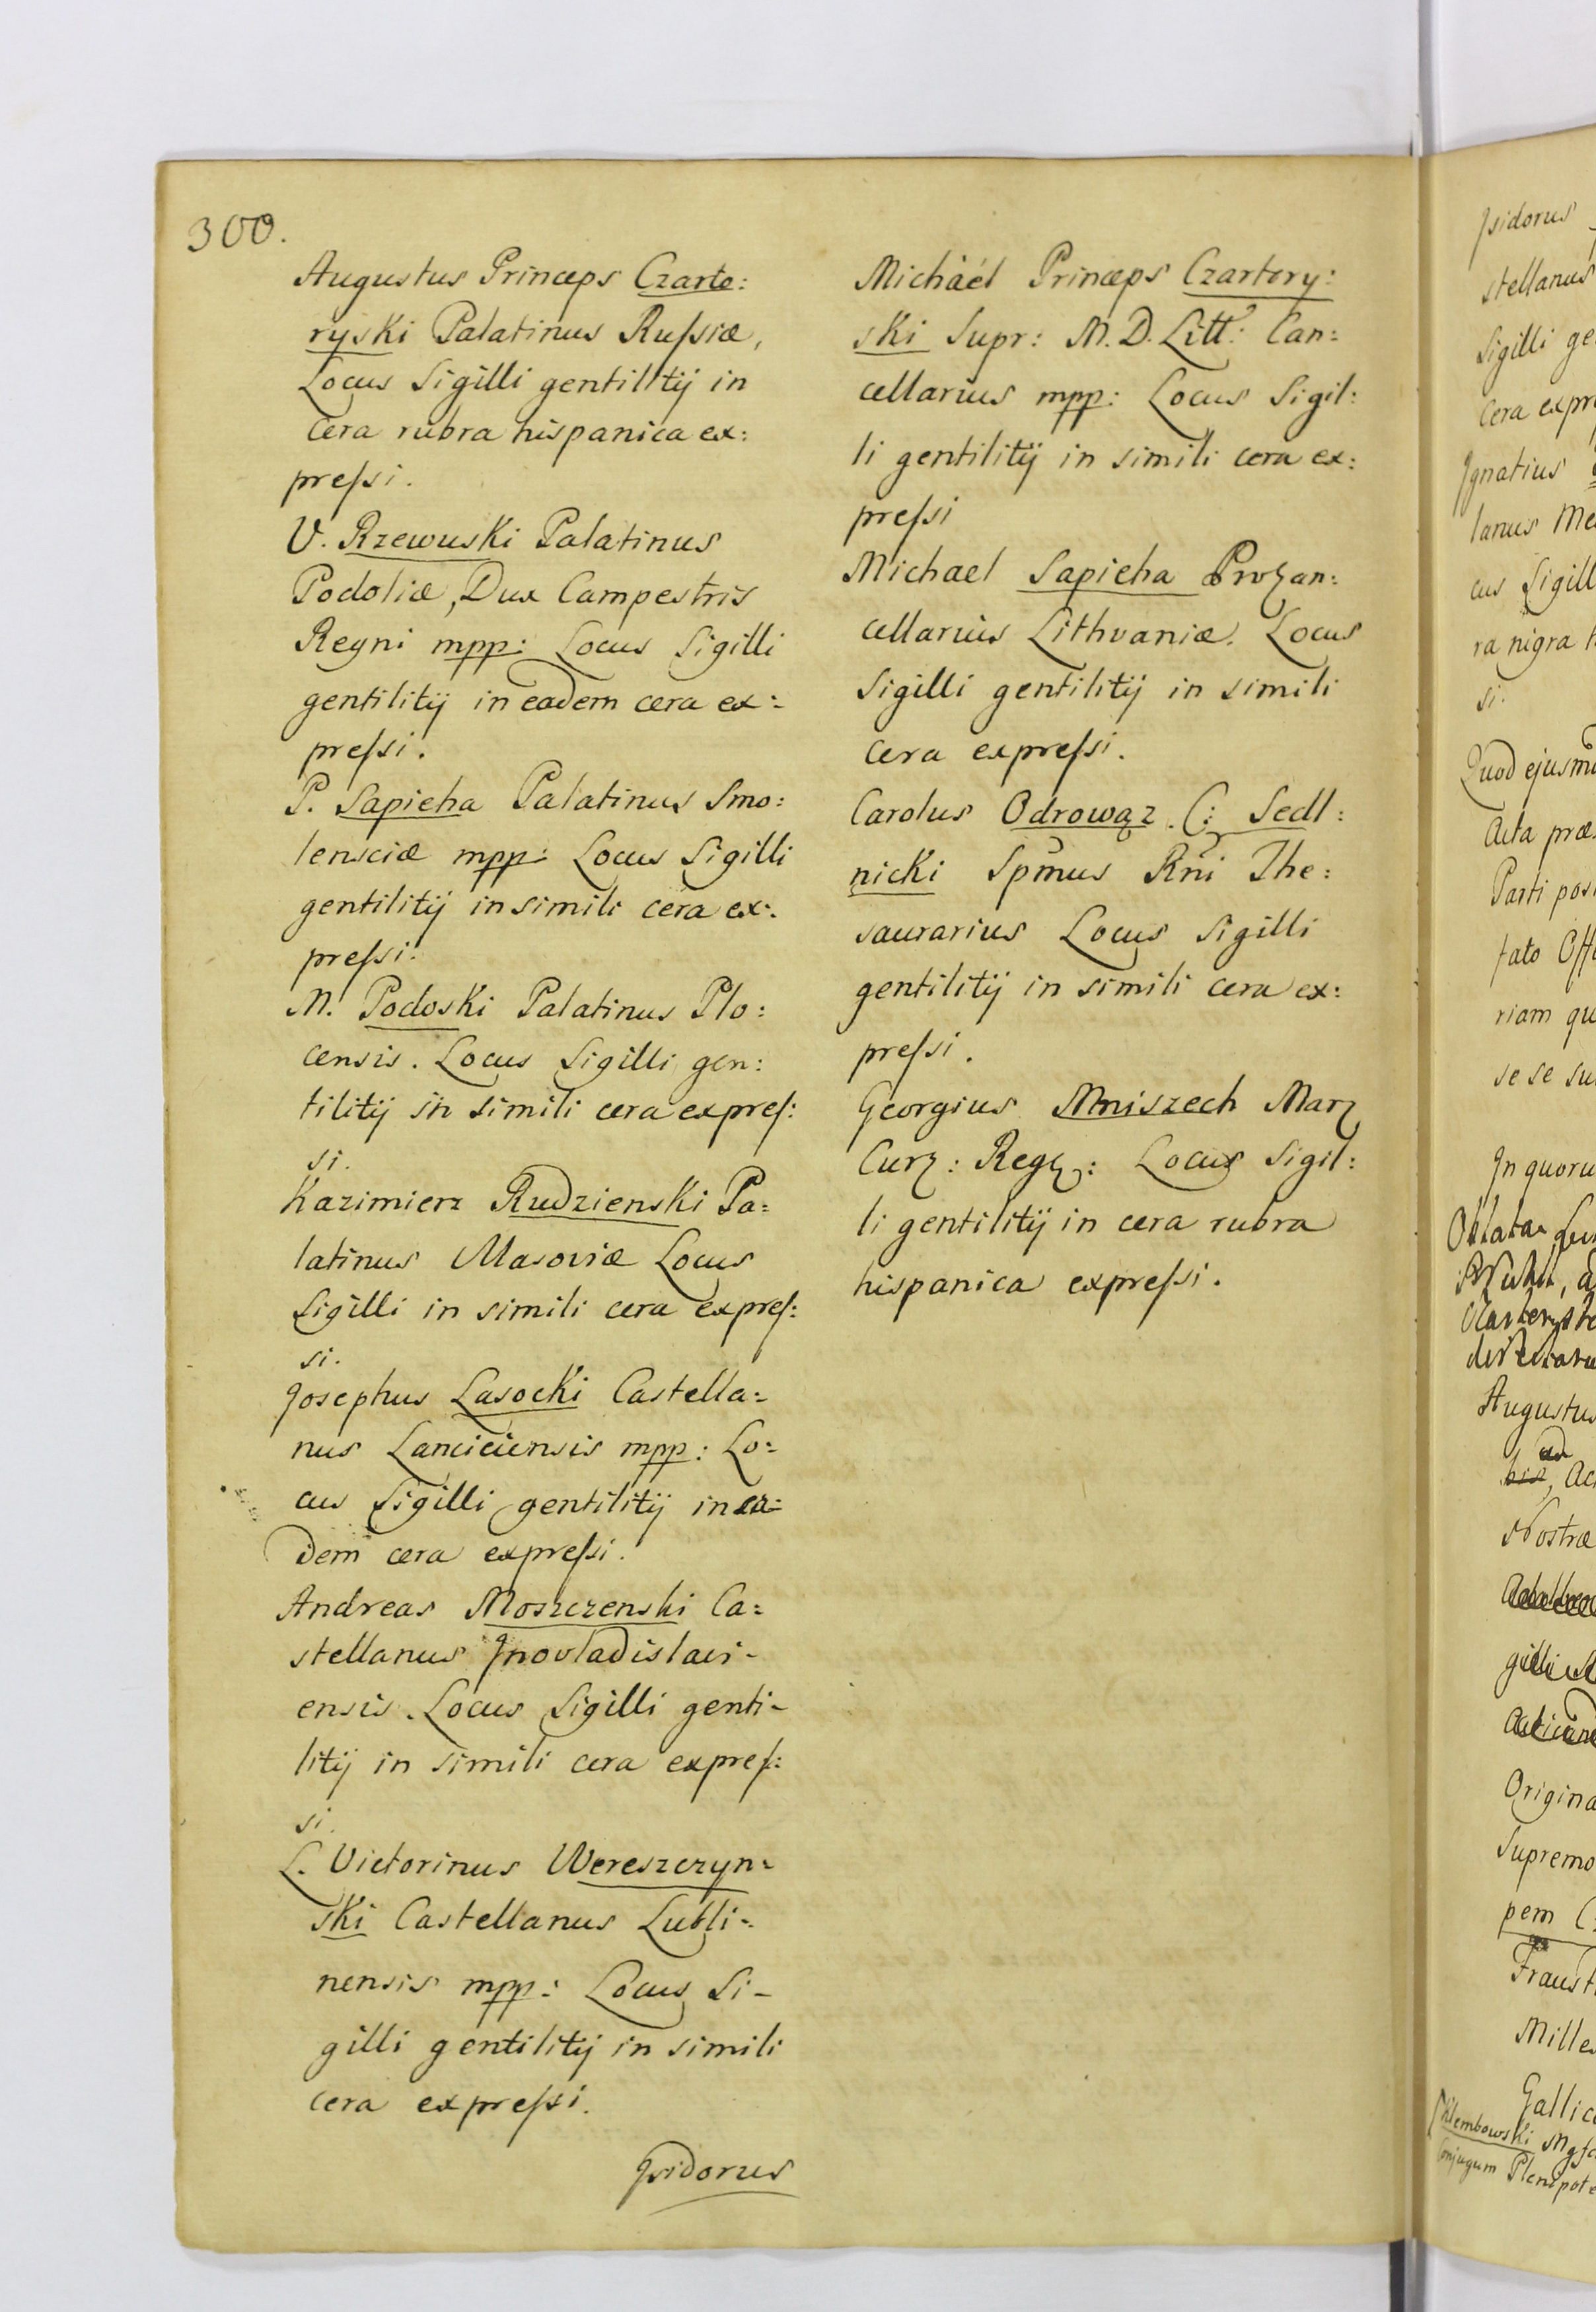 300.
Augustus Princeps Czarto:
ryski Palatinus Russiæ,
Locus Sigilli gentilitij in
cera rubra hispanica ex:
pressi.
V. Rzewuski Palatinus
Podoliæ, Dux Campestris
Regni mpp: Locus Sigilli
gentilitij in eadem cera ex:
pressi.
P. Sapieha Palatinus Smo:
lensciæ mpp: Locus Sigilli
gentilitij in simili cera ex:
pressi.
M. Podoski Palatinus Plo:
censis. Locus Sigilli gen:
tilitij in simili cera expres:
si.
Kazimierz Rudzienski Pa:
latinus Masoviæ Locus
Sigilli in simili cera expres:
si.
Josephus Lasocki Castella:
nus Lanciciensis mpp: Lo:
cus Sigilli gentilitij in ea:
dem cera expressi.
Andreas Moszczenski Ca:
stellanus Jnovladislavi-
ensis. Locus Sigilli genti-
litij in simili cera expres:
si.
L. Victorinus Wereszczyn:
ski Castellanus Lubli:
nensis mpp: Locus Si-
gilli gentilitij in simili
cera expressi.
Jsidorus
Michaél Princeps Czartory:
ski Supr: M. D. Litt: Can:
cellarius mpp: Locus Sigil:
li gentilitij in simili cera ex:
pressi
Michael Sapieha Procan:
cellarius Lithvaniæ. Locus
Sigilli gentilitij in simili
cera expressi.
Carolus Odrowąz C: Sedl:
nicki Spmus Rni The:
saurarius Locus Sigilli
gentilitij in simili cera ex:
pressi.
Georgius Mniszech Mar
Cur: Reg: Locus Sigil:
li gentilitij in cera rubra
hispanica expressi.
Jsidorus
stellanus
Sigilli ge
cera expr
Jgnatius
lanus Me
cus Sigill
ra nigra h
si.
Quod ejusm
Acta præ
Parti pos
fato Off
riam qu
se se su
Jn quoru
Augustus
Nostræ
Origina
Supremo
pem C
Traust
Mille
Gallic